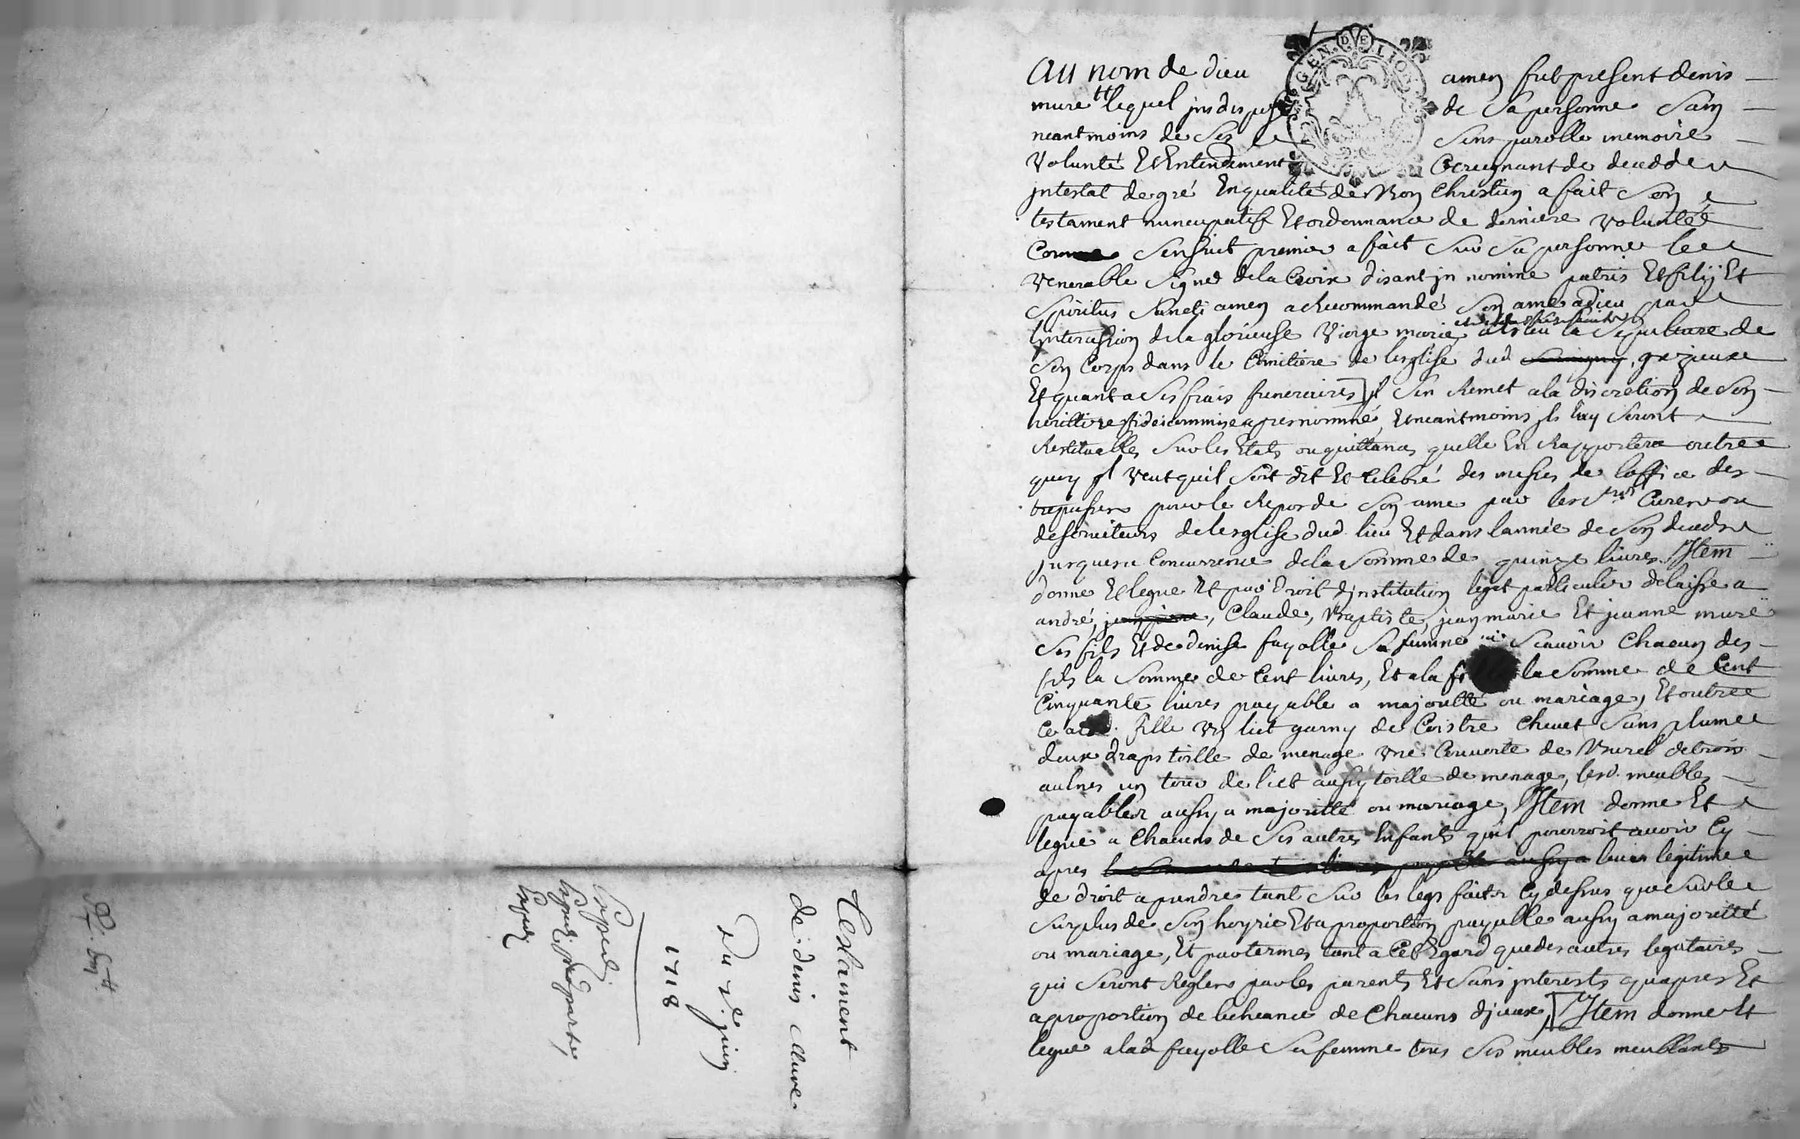 Testament
de denis Mure
Du 2e juin
1718
Expedié
GEN. DE LION
Au nom de dieu amen fut present denis
mure lequel indisposé de Sa personne Sain
neantmoins de Ses Sens parolle memoire
Volunté Et Entendement Craignant de decedder
intestat de gré En qualité de Bon Christien a fait Son
testament nuncupatif Et ordonnance de derniere Volunté
Comme Sensuit premier a fait Sur Sa personne le
Venerable Signe de la Croix disant in nomine patris Et filij Et
Spiritus Sancti amen a Recommandé Son ame a dieu par
lintercession de la glorieuse Vierge marie a Esleu la Sepulture de
Son Corps dans le Cimitiere de lesglise dud grezieux
Et quant a Ses frais funeraires il Sen Remet a la discretion de Son
heritiere fideicommise apres nommée, Et neantmoins ils luy Seront
Restituables Sur les Etats ou quittances quelle En Rapportera outre
quoy il Veut quil Soit dit Et Celebré des messes de loffice des
trepasses pour le Repos de Son ame par les Srs Curé ou
desserviteurs de lesglise dud. lieu Et dans lannée de Son deceds
jusques a Concurrence de la Somme de quinze livres. Item
donne Et legue Et par droit dinstitution leget particulier delaisse a
andré, Claude, Baptiste, jean marie Et jeanne mure
Ses fils Et de denise fayolle Sa femme Scavoir Chacun des
fils la Somme de Cent livres, Et a la la Somme de Cent
Cinquante livres payable a majorité ou mariage, Et outre
Ce a fille Un lict garny de Coistre Chevet Sans plume
deux draps toille de menage Une Couverte de Bural de trois
aulnes un tour de lict aussy toille de menage, lesd. meubles
payables aussy a majorité ou mariage, Item donne Et
legue a Chacuns de Ses autres Enfants quil pourroit avoir Cy
apres leur legitime
de droit a prendre tant Sur les legs faits Cy dessus que Sur le
Surplus de Son hoyrie Et a proportion payable aussy a majorité
ou mariage, Et par termes tant a Cet Egard que des autres legataires
qui Seront Reglés par les parents Et Sans interests quapres Et
a proportion de lecheance de Chacuns diceux, Item donne Et
legue a lad fayolle Sa femme tous Ses meubles meublants